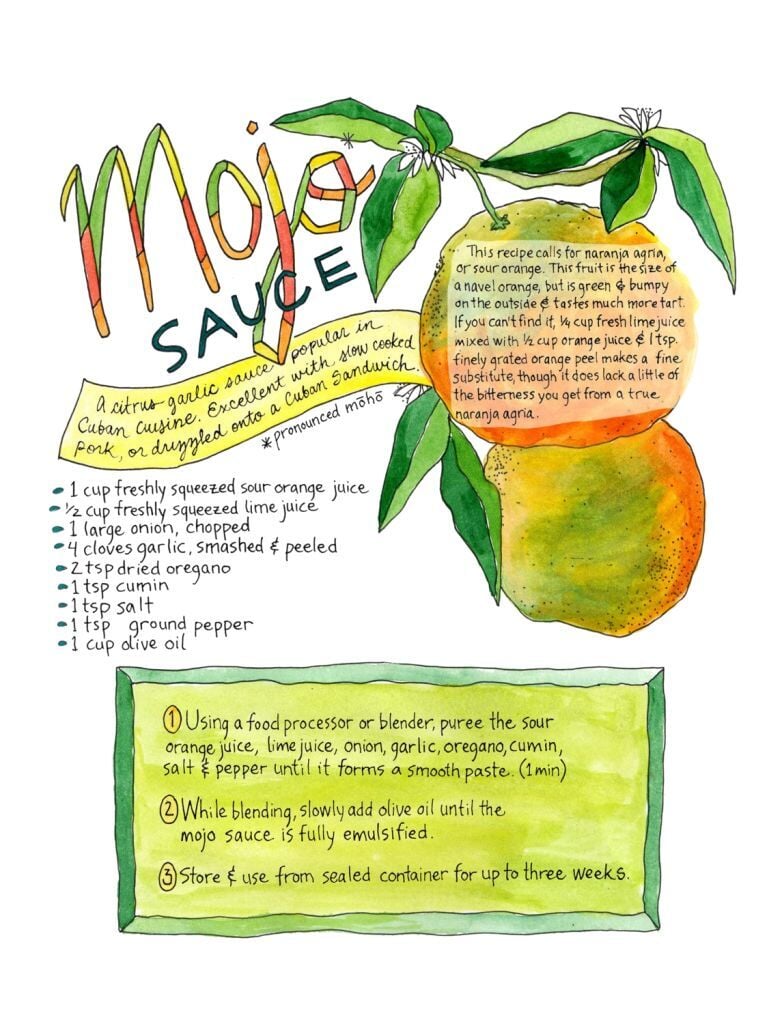 Mojo*
SAUCE
A citrus garlic sauce popular in
Cuban Cuisine. Excellent with slow cooked
Pork, or druzzled onto a Cuban Sandwich.
*pronounced mōhō
This recipe calls for naranja agria,
or sour orange. This fruit is the size of
a navel orange, but is green & bumpy
on the outside & tastes much more tart.
If you can't find it, ¼ cup fresh lime juice
mixed with ½ cup orange juice & 1 tsp.
finely grated orange peel makes a fine
substitute, though it does lack a little of
the bitterness you get from a true
naranja agria.
• 1 cup freshly squeezed sour orange juice
• ½ cup freshly squeezed lime juice
• 1 large onion, chopped
• 4 cloves garlic, smashed & peeled
• 2 tsp dried oregano
• 1 tsp cumin
• 1 tsp salt
• 1 tsp ground pepper
• 1 cup olive oil
① Using a food processor or blender, puree the sour
orange juice, lime juice, onion, garlic, oregano, cumin,
salt & pepper until it forms a smooth paste. (1 min)
② While blending, slowly add olive oil until the
mojo sauce is fully emulsified.
③ Store & use from sealed container for up to three weeks.